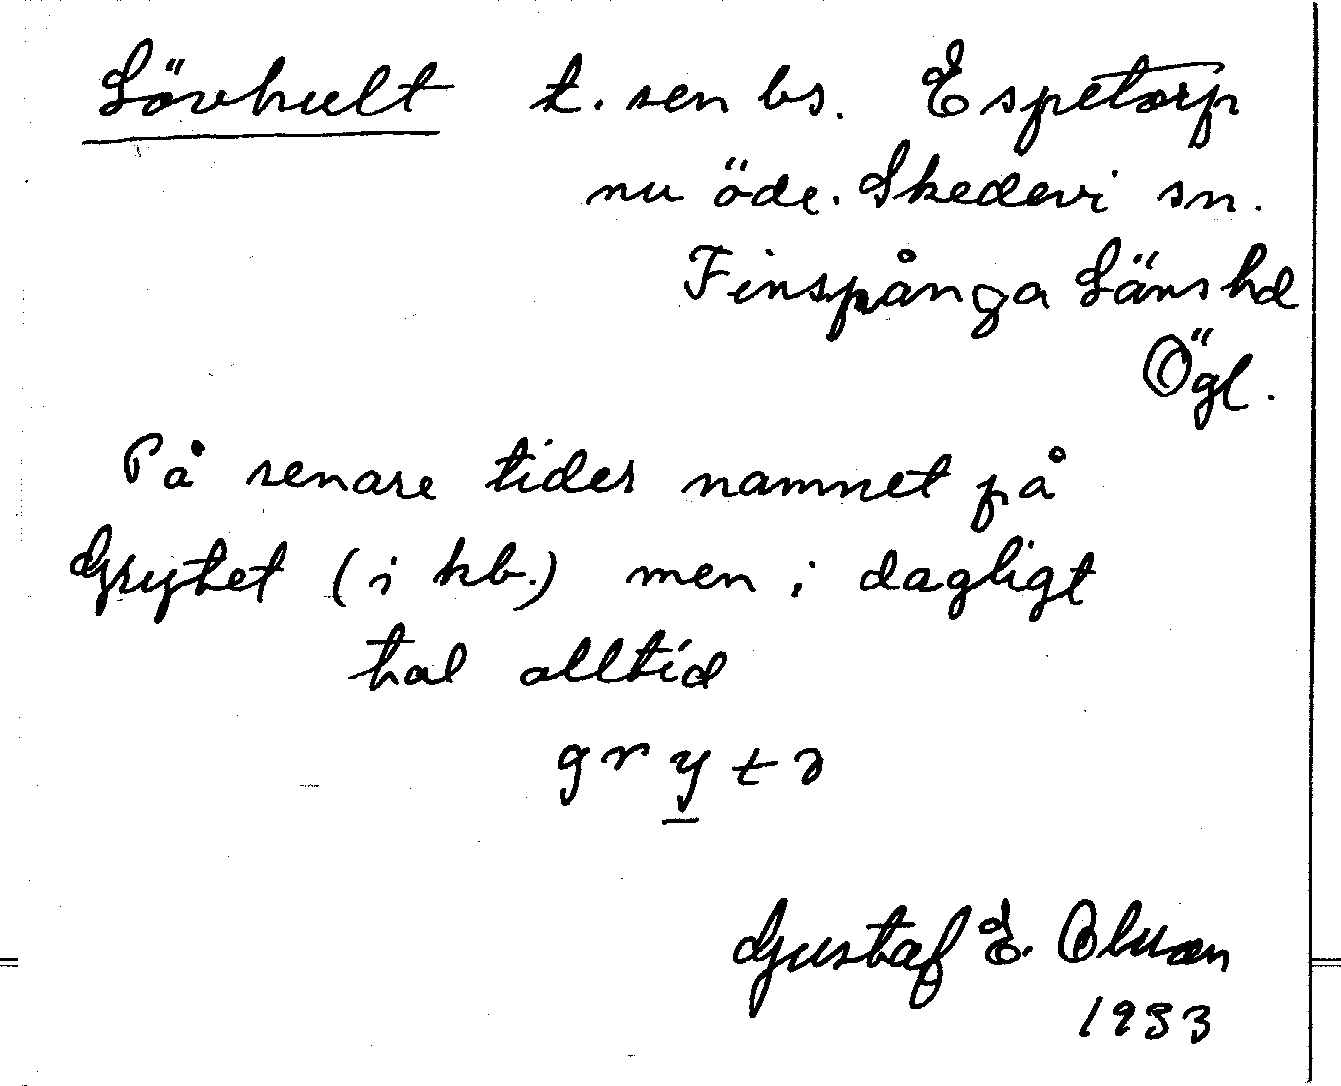 Lövhult t. sen bs. Espetorp
nu öde. Skedevi sn.
Finspånga Länshd
Ögl.
På senare tider namnet på
Grytet (i kb.) men i dagligt
tal alltid
gryt
Gustaf E.
1933